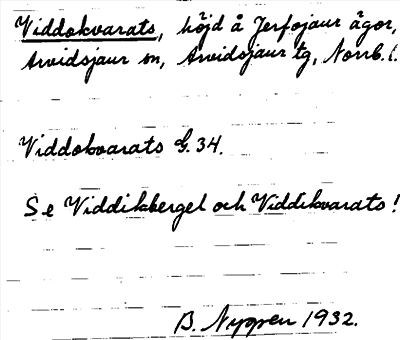 Viddokvarats, höjd å Jerfojaur ägor,
Arvidsjaur sn, Arvidsjaur tg, Norrb. l.
Viddokvarats G. 34.
Se Viddikberget och Viddikvarats!
B. Nygren 1932.